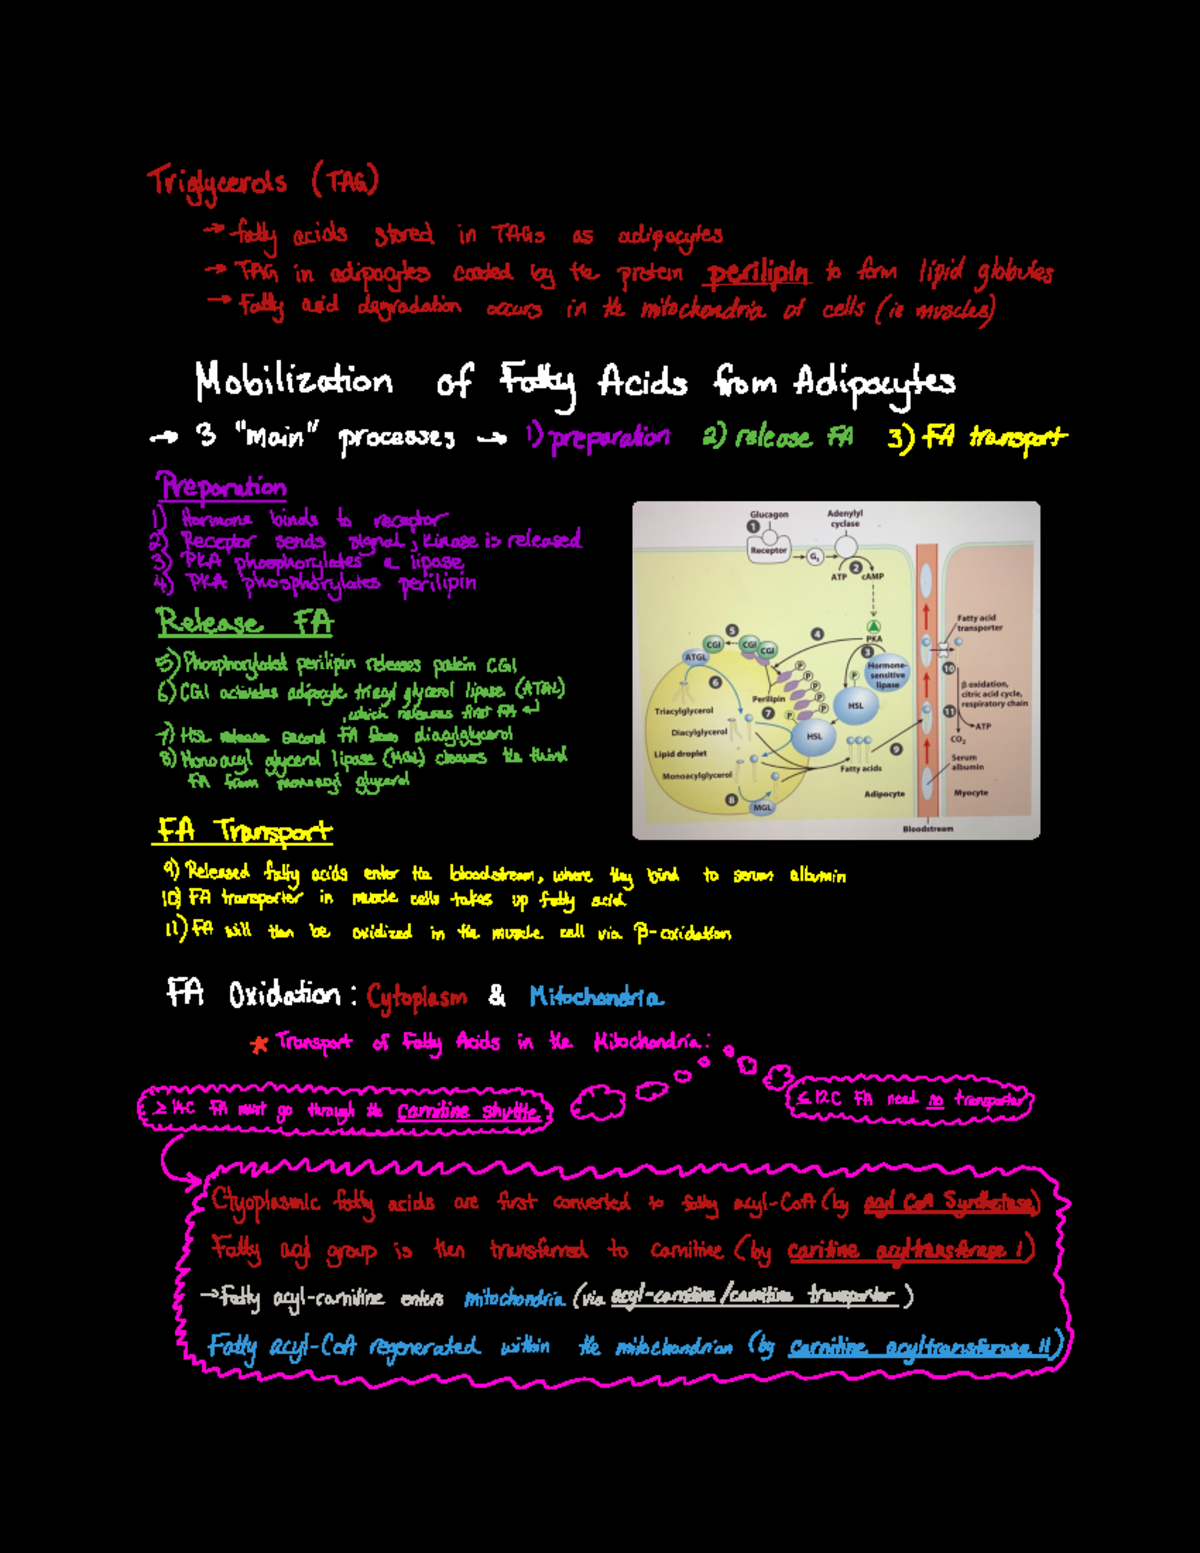 Triglycerols (TAG)
→ fatty acids stored in TAGs as adipocytes
→ TAG in adipocytes coated by the protein perilipin to form lipid globules
→ Fatty acid degradation occurs in the mitochondria of cells (ie muscles)
Mobilization of Fatty Acids from Adipocytes
→ 3 "main" processes → 1) preparation 2) release FA 3) FA transport
Preparation
1) Hormone binds to receptor
2) Receptor sends signal; kinase is released
3) PKA phosphorylates a lipase
4) PKA phosphorylates perilipin
Release FA
5) Phosphorylated perilipin releases protein CGI
6) CGI activates adipocyte triacyl glycerol lipase (ATGL)
, which releases first FA ↵
7) HSL release second FA from diacylglycerol
8) Monoacyl glycerol lipase (MGL) cleaves the third
FA from monoacyl glycerol
Glucagon
Adenylyl
cyclase
1
Receptor
Gs
2
ATP
cAMP
PKA
3
4
5
CGI
CGI
CGI
ATGL
6
Hormone-
sensitive
lipase
P
HSL
P
P
P
P
P
Perilipin
7
HSL
Triacylglycerol
Diacylglycerol
Lipid droplet
Monoacylglycerol
8
MGL
Fatty acids
9
Adipocyte
Fatty acid
transporter
10
β oxidation,
citric acid cycle,
respiratory chain
11
ATP
CO2
Serum
albumin
Myocyte
Bloodstream
FA Transport
9) Released fatty acids enter the bloodstream, where they bind to serum albumin
10) FA transporter in muscle cells takes up fatty acid
11) FA will then be oxidized in the muscle cell via β-oxidation
FA Oxidation: Cytoplasm & Mitochondria
* Transport of Fatty Acids in the Mitochondria:
≥ 14C FA must go through the carnitine shuttle
≤ 12C FA need no transporter
Ctyoplasmic fatty acids are first converted to fatty acyl-CoA (by acyl CoA Synthetase)
Fatty acyl group is then transferred to carnitine (by caritine acyltransferase I)
→ Fatty acyl-carnitine enters mitochondria (via acyl-carnitine/carnitine transporter)
Fatty acyl-CoA regenerated within the mitochondrion (by carnitine acyltransferase II)